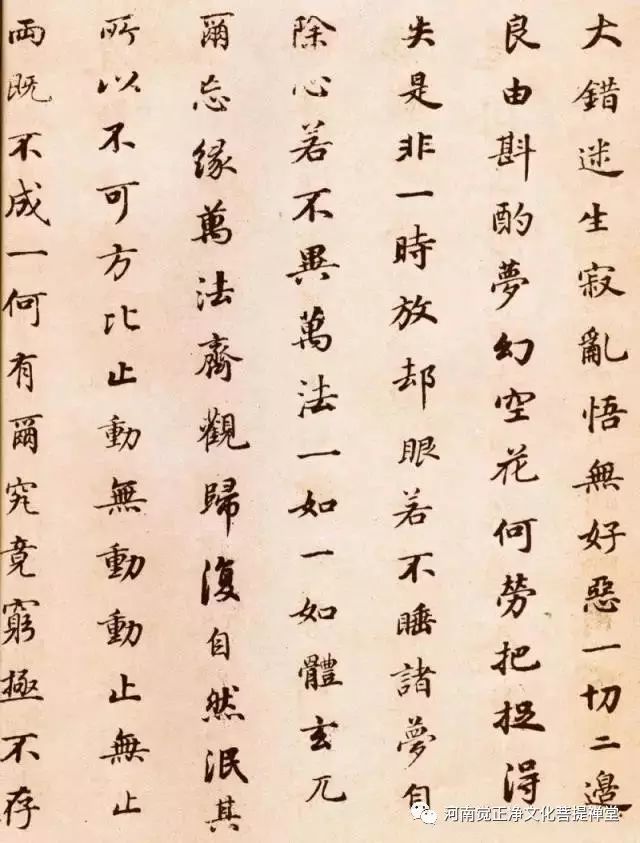 大錯迷生寂亂悟無好惡一切二邊
良由斟酌夢幻空花何勞把捉得
失是非一時放却眼若不睡諸夢自
除心若不異萬法一如一如體玄兀
爾忘緣萬法齊觀歸復自然泯其
所以不可方比止動無動動止無止
兩既不成一何有爾究竟窮極不存
河南觉正净文化菩提禅堂